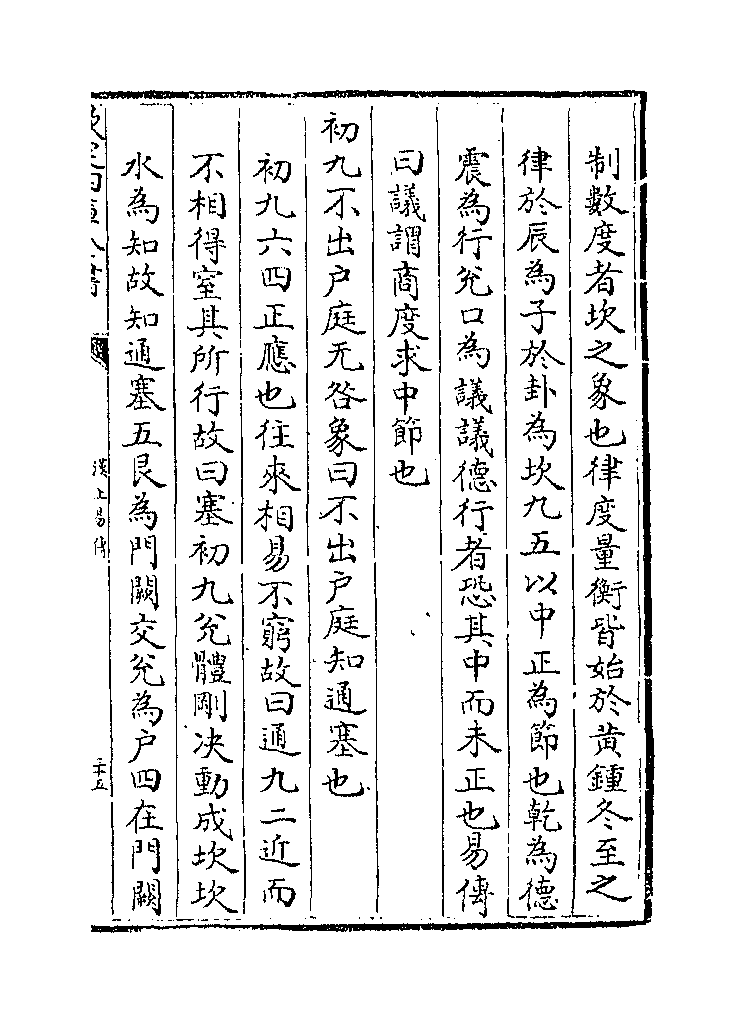 制數度者坎之象也律度量衡皆始於黄鍾冬至之
律於辰為子於卦為坎九五以中正為節也乾為德
震為行兊口為議議德行者恐其中而未正也易傳
曰議謂商度求中節也
初九不出户庭无咎象曰不出户庭知通塞也
初九六四正應也往來相易不窮故曰通九二近而
不相得窒其所行故曰塞初九兊體剛决動成坎坎
水為知故知通塞五艮為門闕交兊為户四在門闕
欽定四庫全書
漢上易傳
二十五